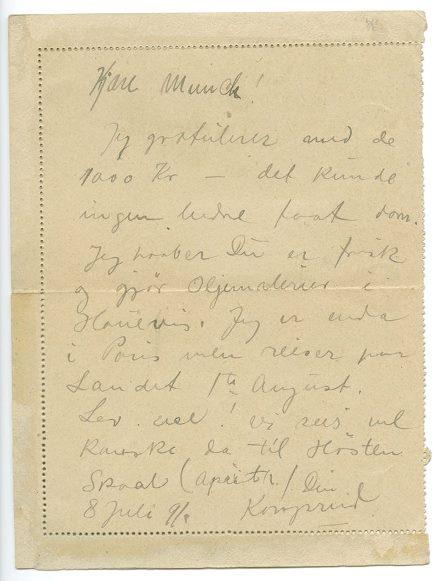 Kjære Munch!
Jeg gratulerer med de
1000 Kr — det kunde
ingen bedre faat dem.
Jeg haaber Du er frisk
og gjør Oljemalerier i
Jeg er enda
i Paris men reiser paa
Landet 1ste August.
Lev vel! Vi sees vel
kanske da til Høsten
Skaal ( / Din
8 Juli